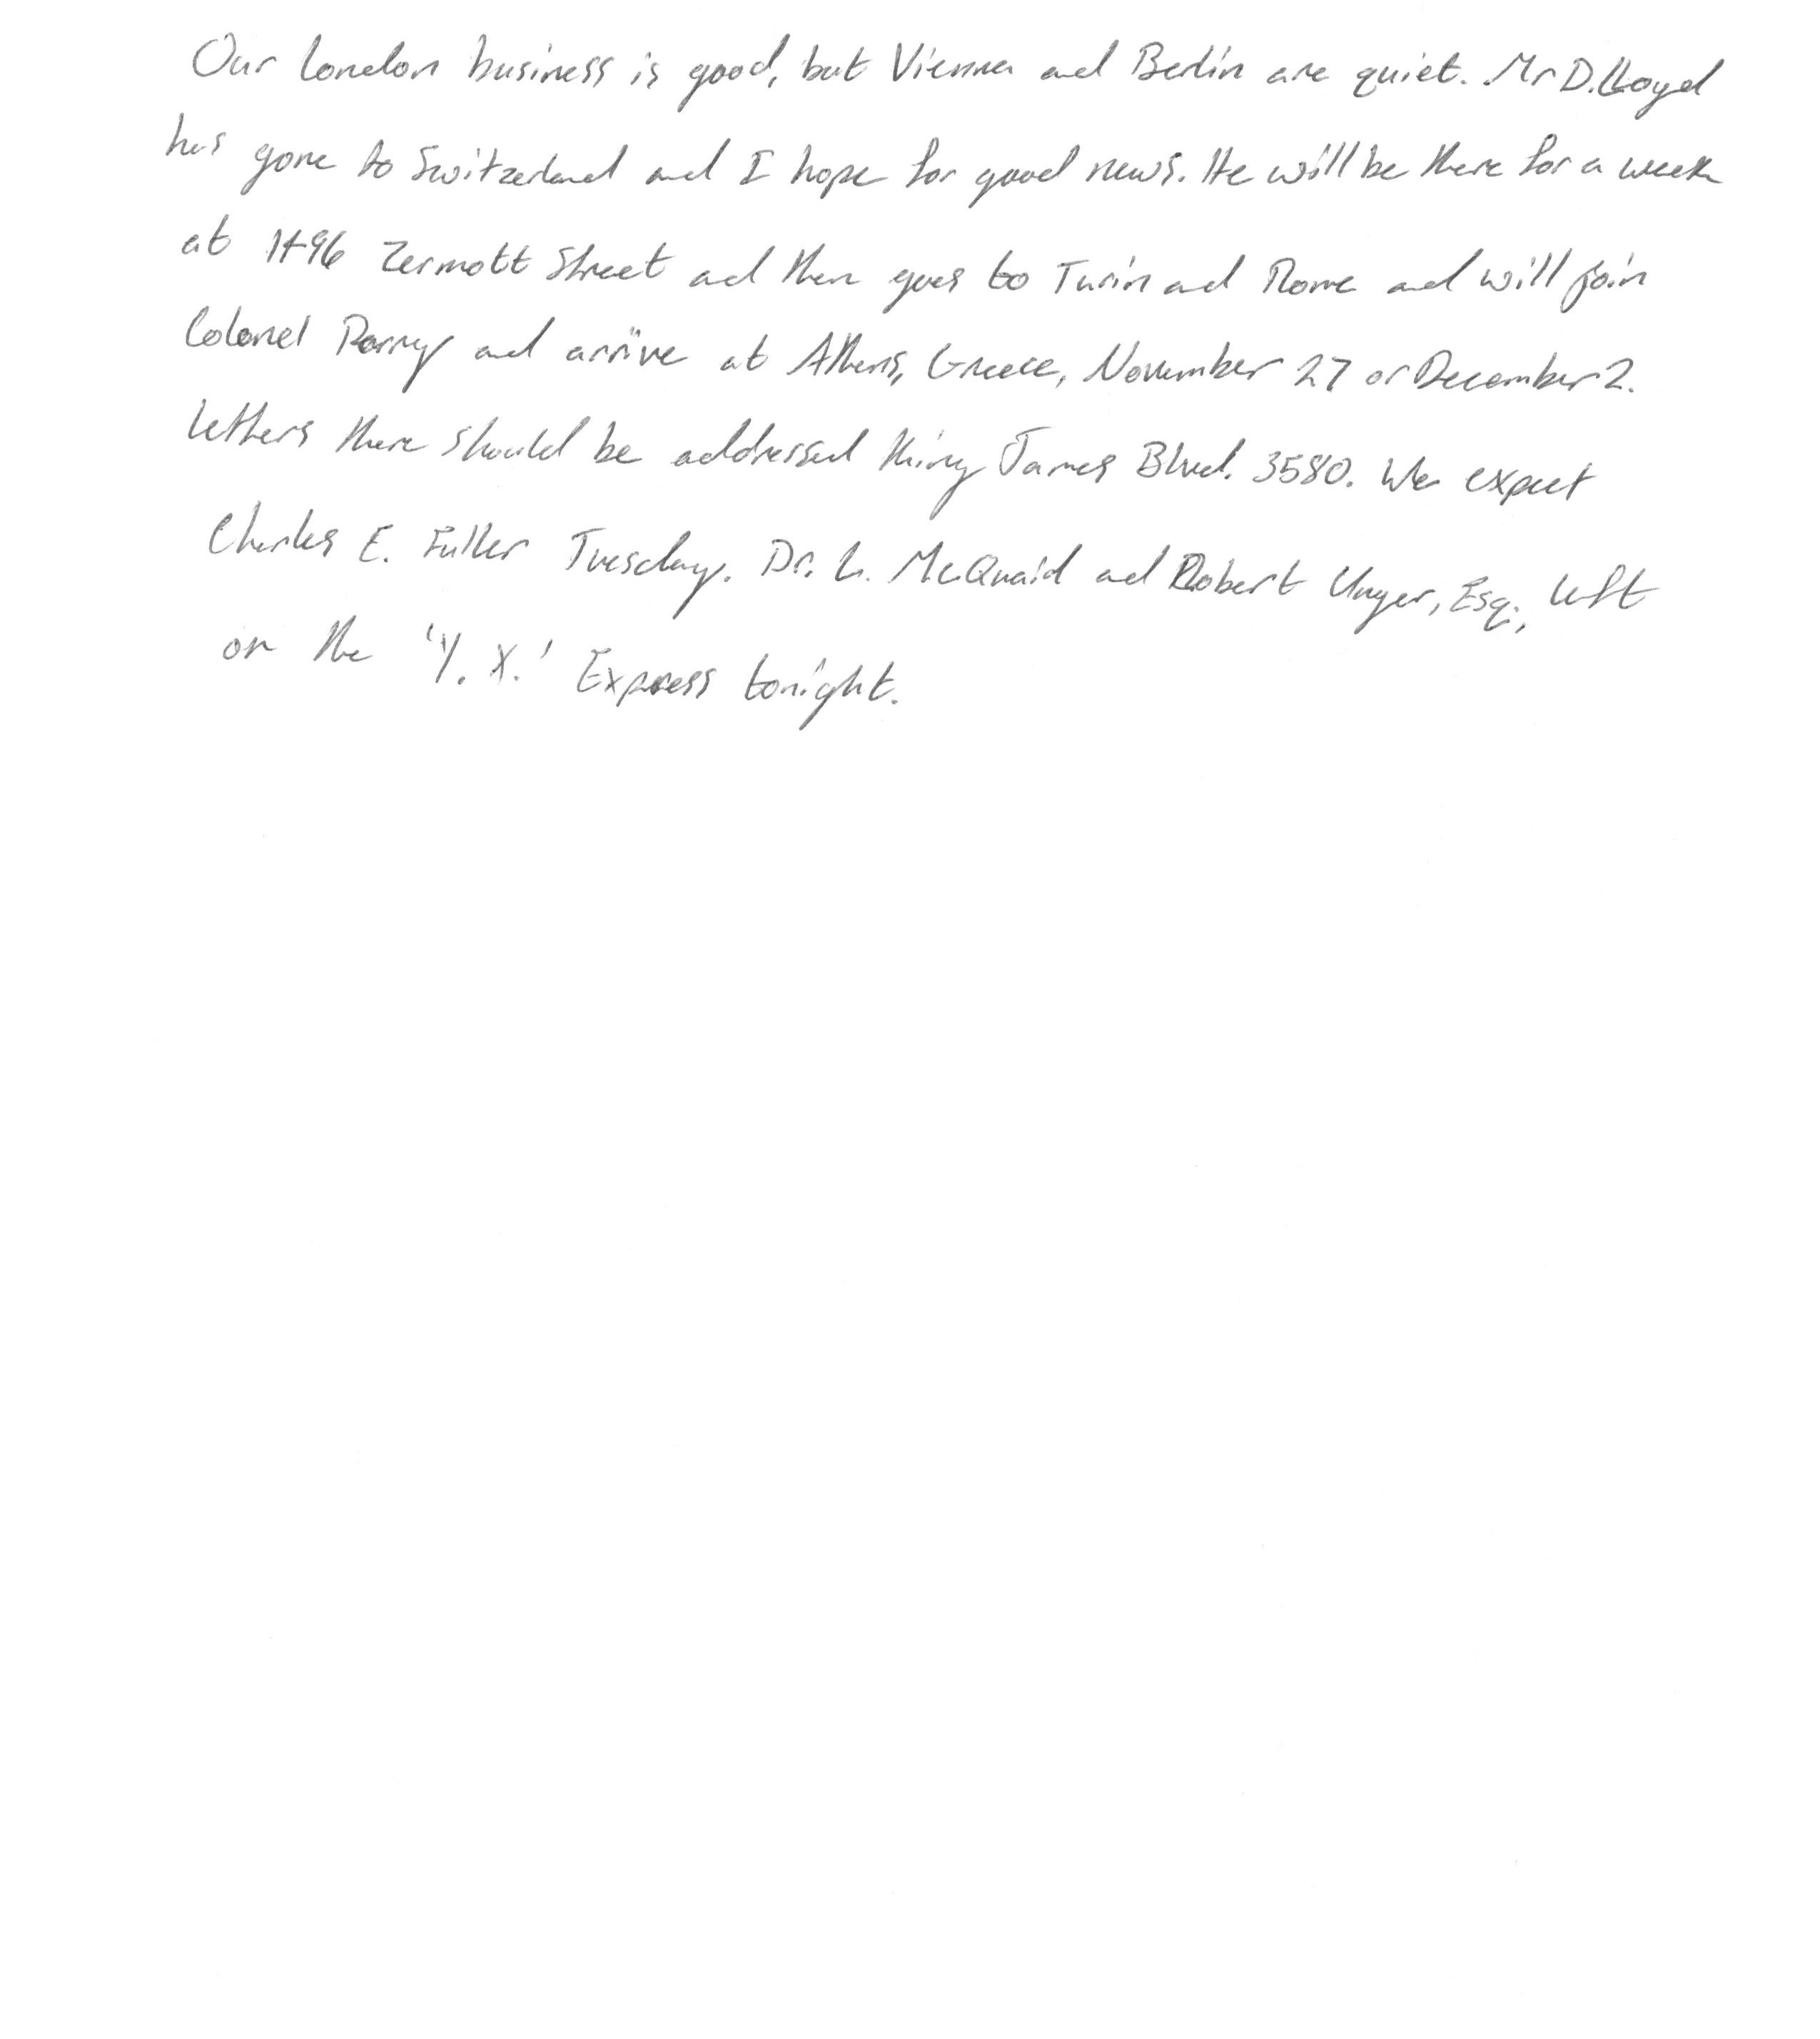 Our London business is good, but Vienna and Berlin are quiet. Mr D. Lloyd
has gone to Switzerland and I hope for good news. He will be there for a week
at 1496 Zermott Street and then goes to Turin and Rome and will join
Colonel Parry and arrive at Athens, Greece, November 27 or December 2.
Letters there should be addressed King James Blvd. 3580. We expect
Charles E. Fuller Tuesday. Dr. L. McQuaid and Robert Unger, Esq., left
on the 'Y. X.' Express tonight.